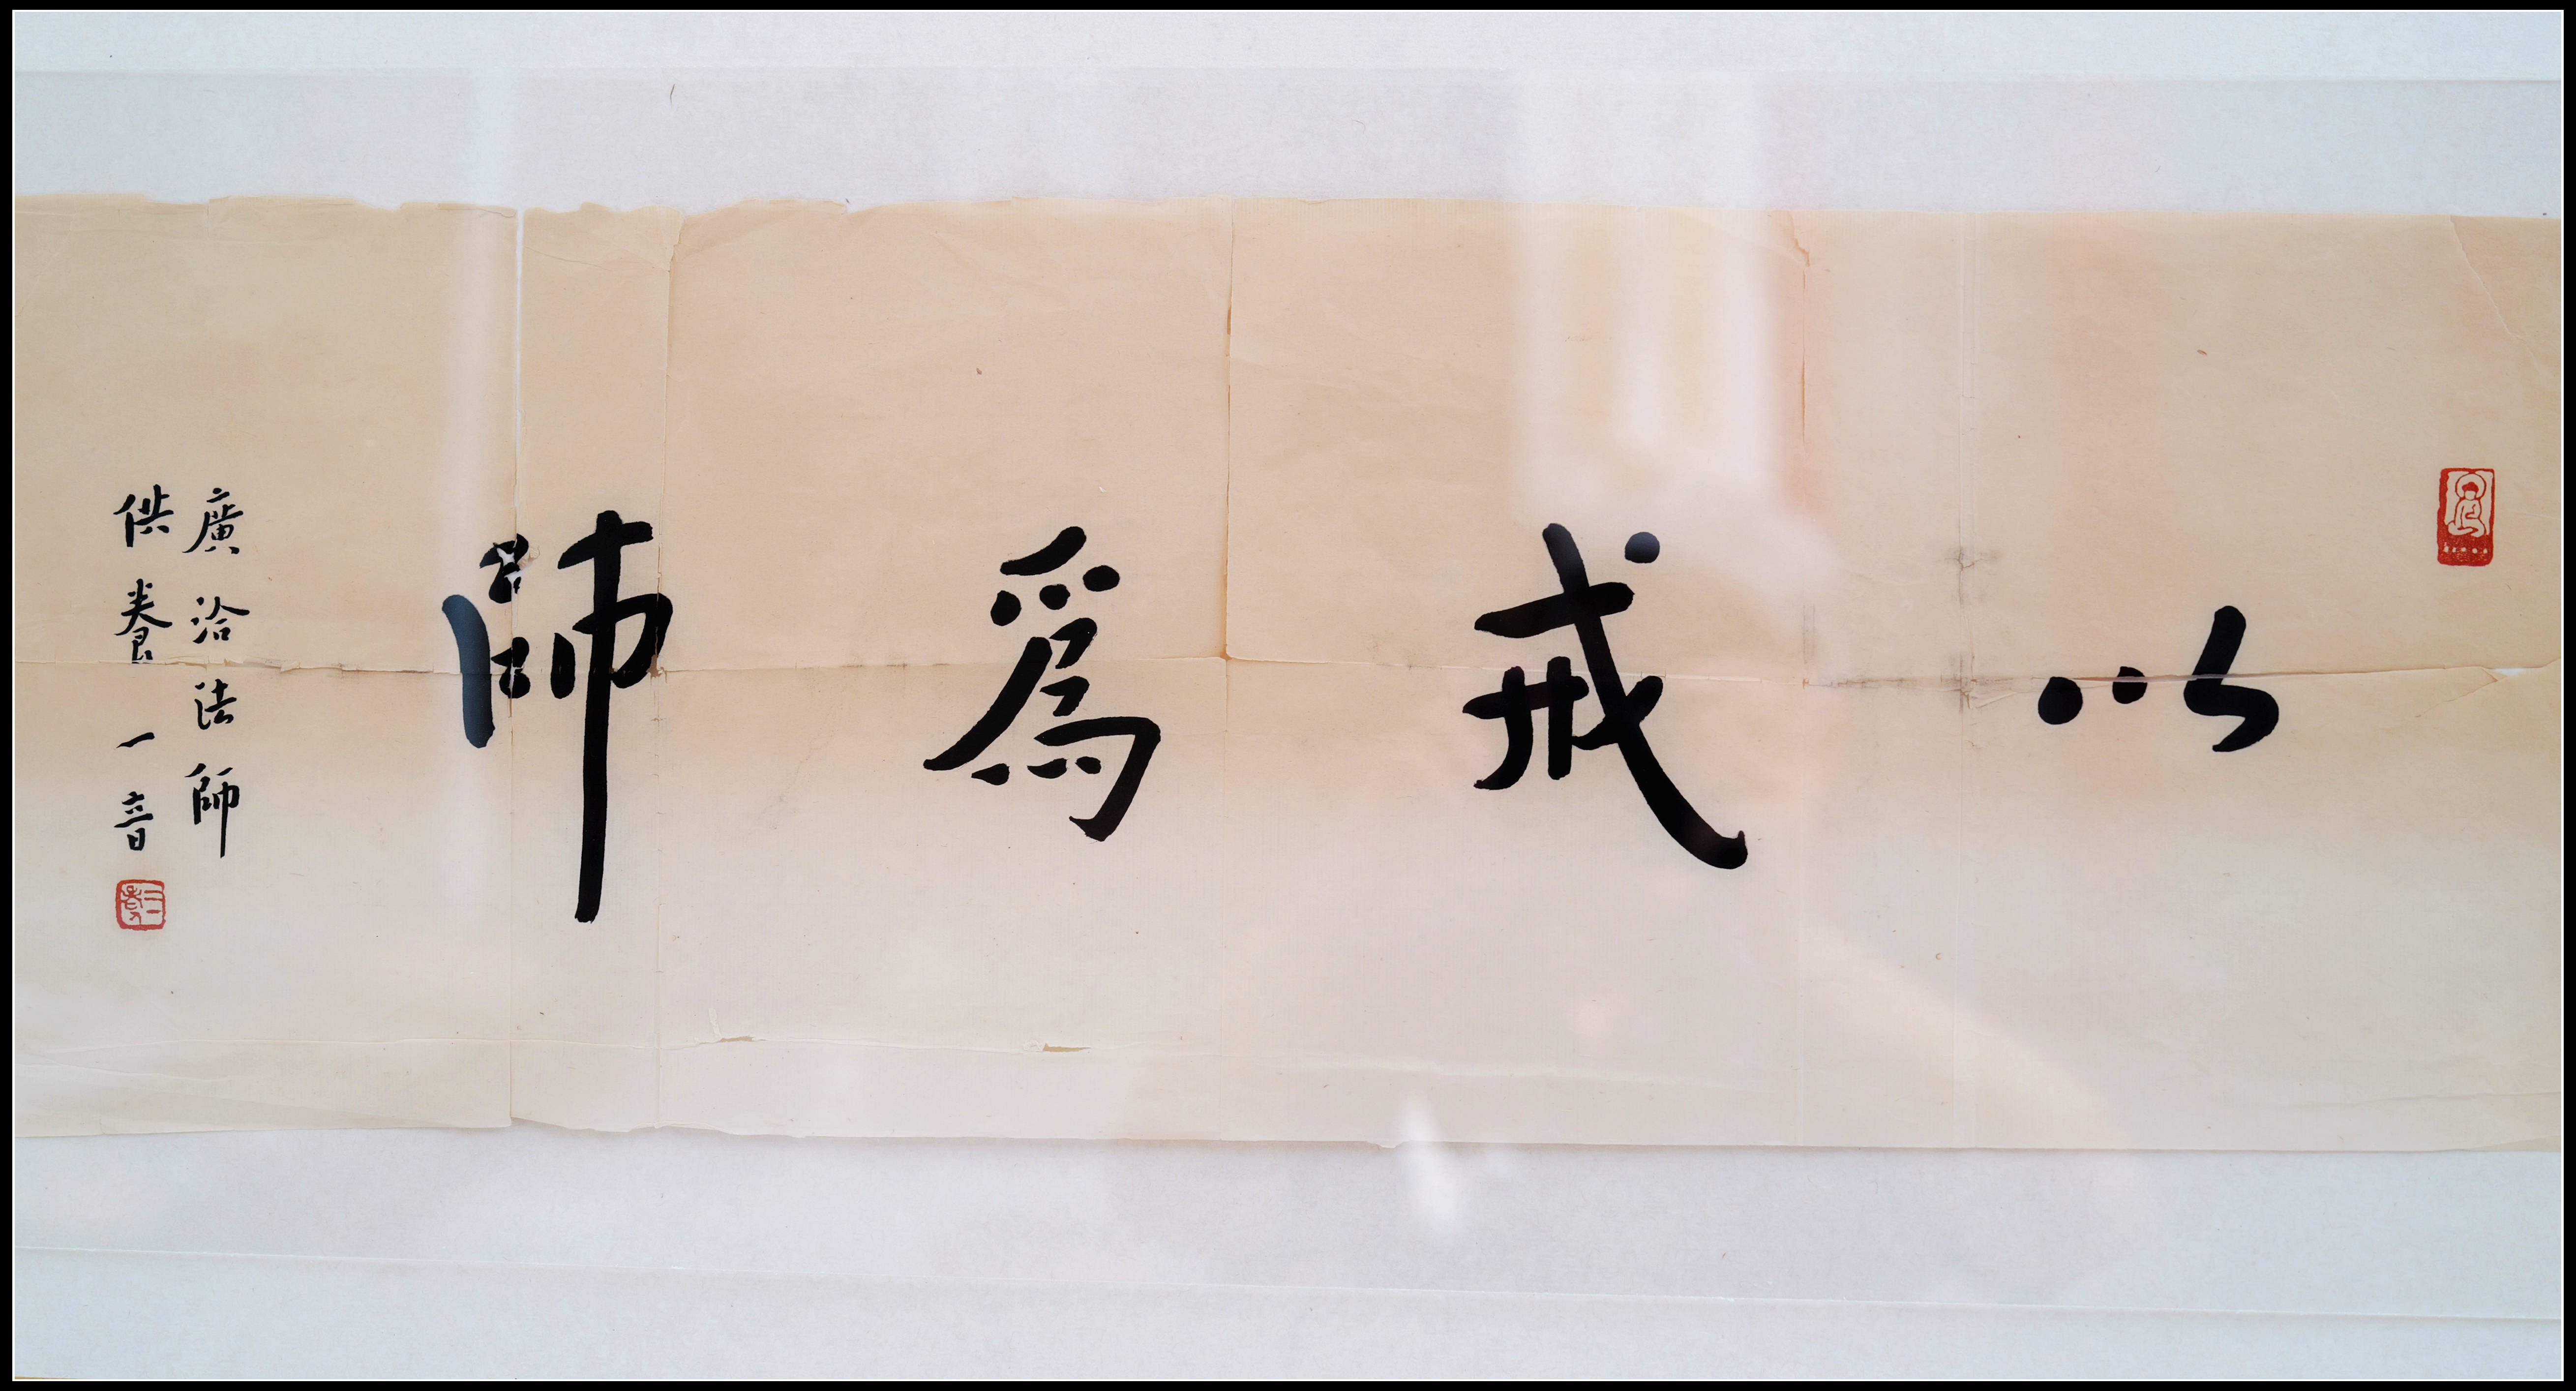 以戒爲師
廣洽法師
供養 一音